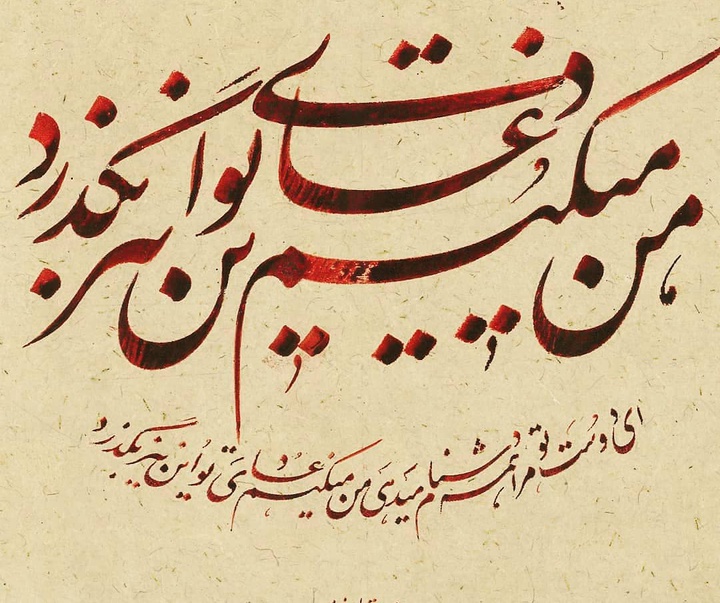 من میکنم دعای تو این نیز بگذرد
ای دوست تو مرا همه دشنام میدهی من میکنم دعای تو این نیز بگذرد